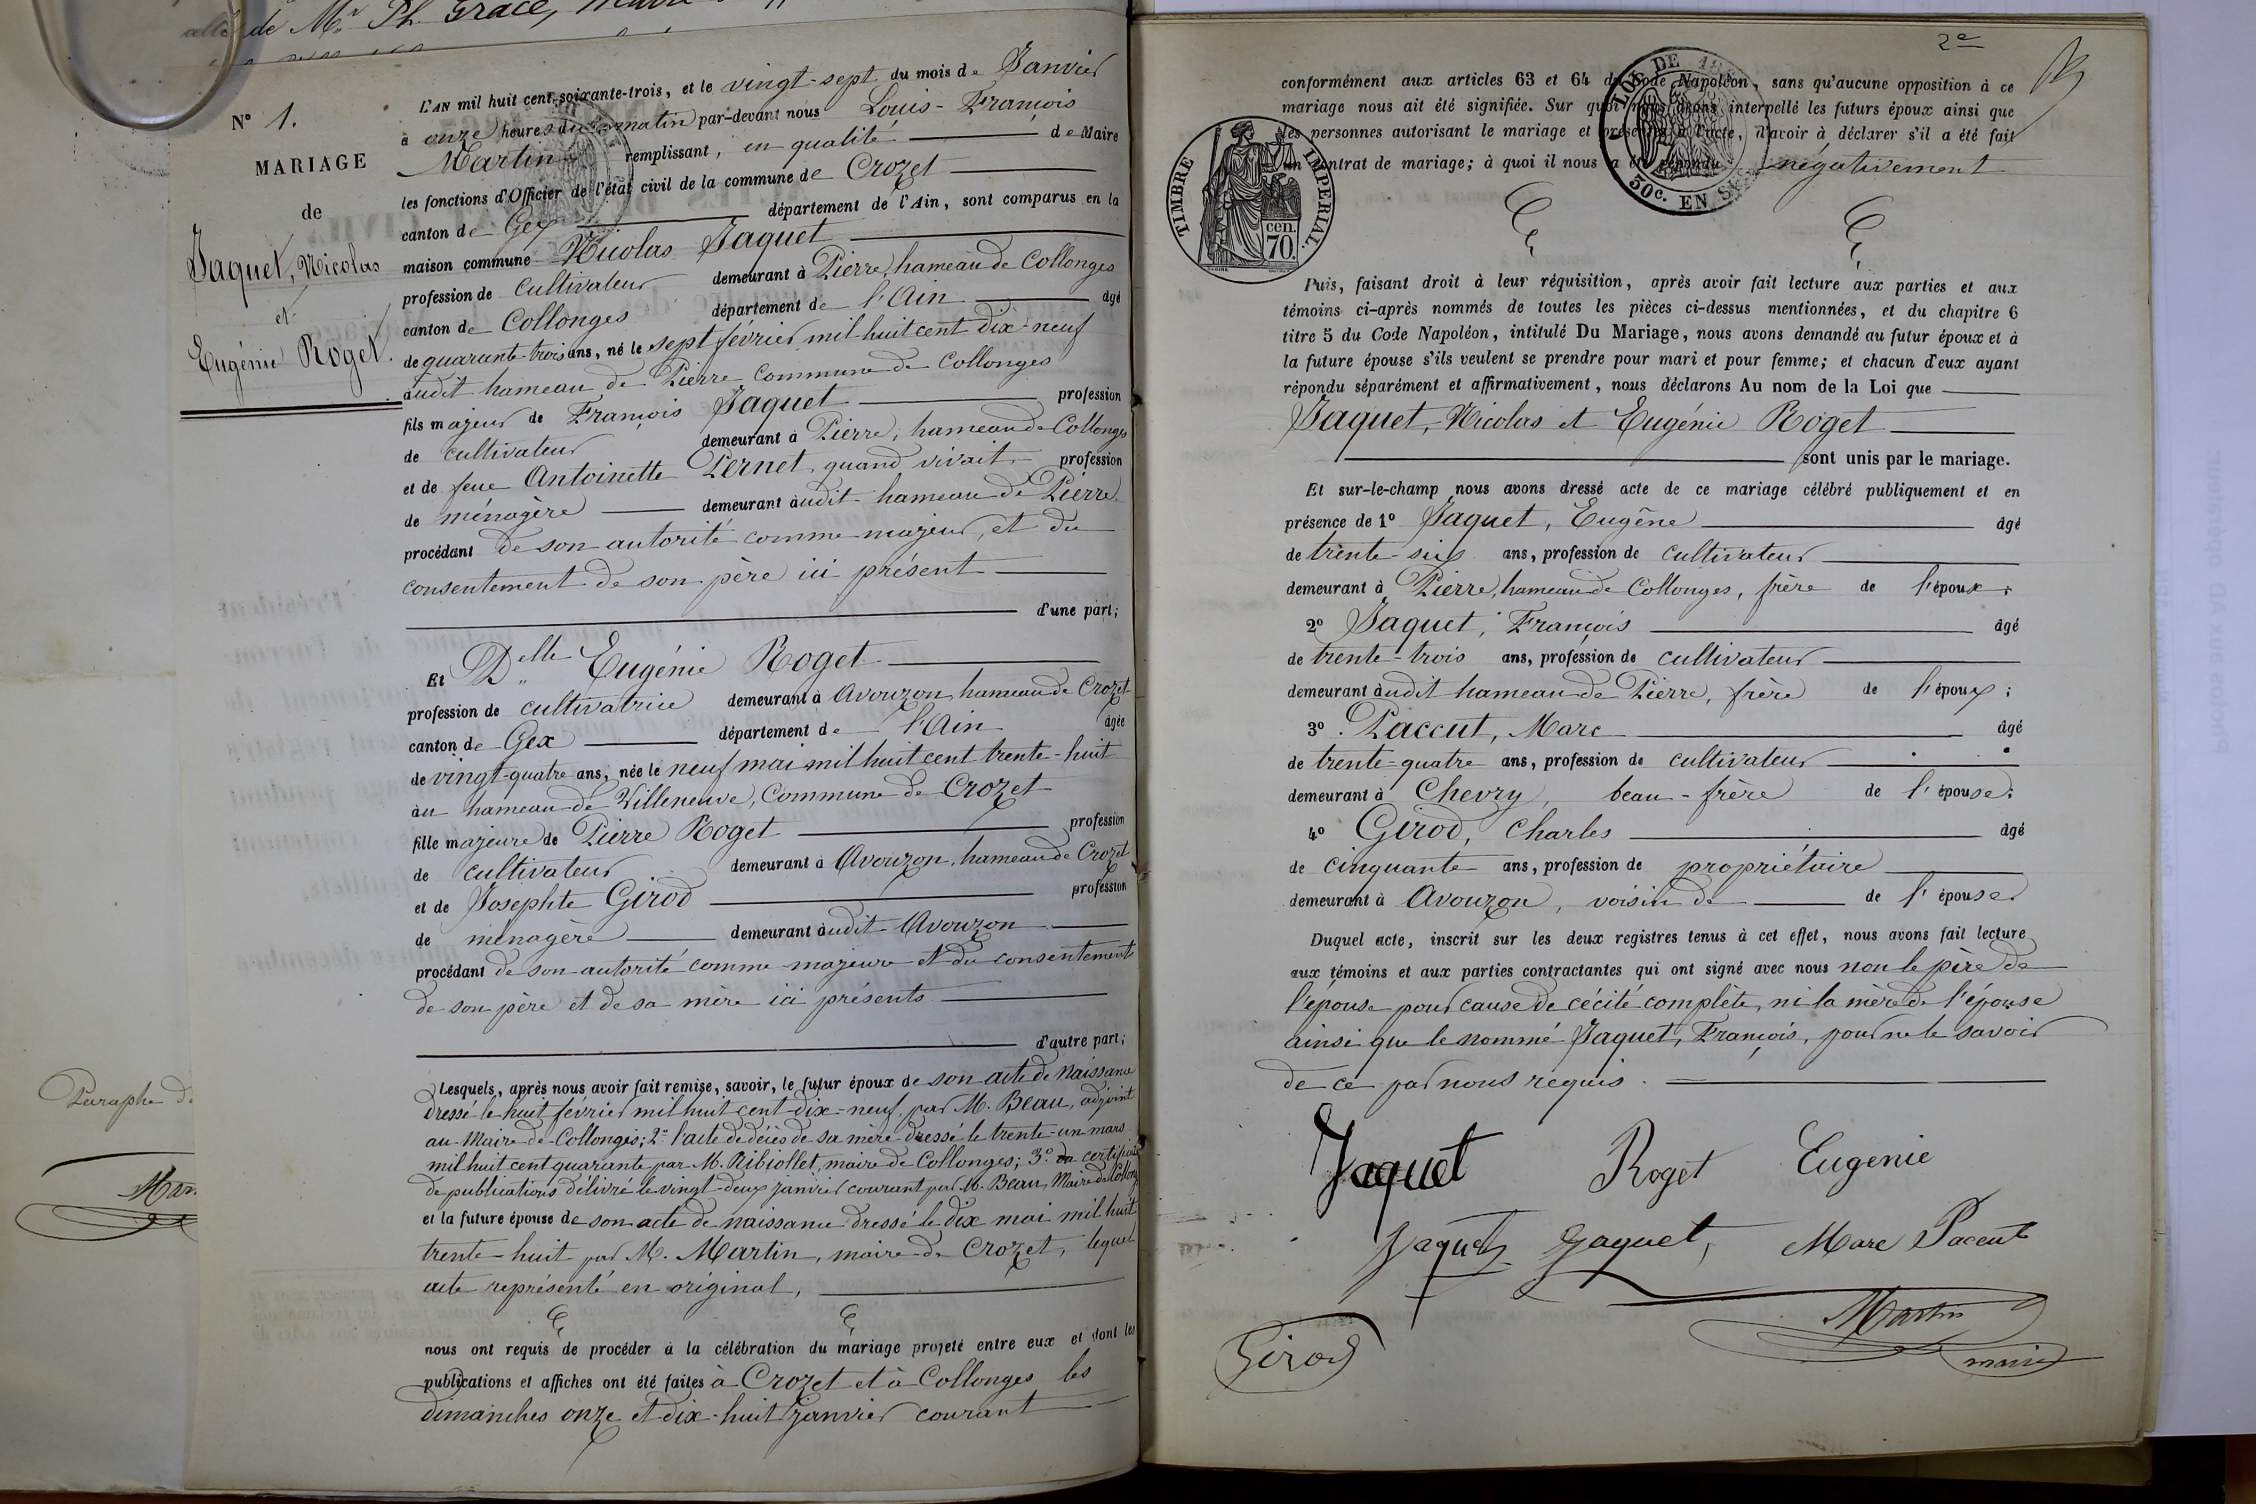 acte de Mr. Ph. Grace,
N° 1.
MARIAGE
de
Jaquet, Nicolas
et
Eugénie Roget.
L'AN mil huit cent soixante-trois, et le vingt-sept du mois de Janvier
à onze heures du matin par-devant nous Louis-François
Martin remplissant, en qualité de Maire
les fonctions d'Officier de l'état civil de la commune de Crozet
canton de Gex département de l'Ain, sont comparus en la
maison commune Nicolas Jaquet
profession de cultivateur demeurant à Pierre, hameau de Collonges
canton de Collonges département de l'Ain âgé
de quarante-trois ans, né le sept février mil huit cent dix-neuf
audit hameau de Pierre commune de Collonges
fils majeur de François Jaquet profession
de cultivateur demeurant à Pierre, hameau de Collonges
et de feue Antoinette Pernet, quand vivait profession
de ménagère demeurant audit hameau de Pierre
procédant de son autorité comme majeur, et du
consentement de son père ici présent
d'une part;
Et Delle Eugénie Roget
profession de cultivatrice demeurant à Avouzon, hameau de Crozet
canton de Gex département de l'Ain âgée
de vingt-quatre ans, née le neuf mai mil huit cent trente-huit
au hameau de Villeneuve, Commune de Crozet
fille majeure de Pierre Roget profession
de cultivateur demeurant à Avouzon, hameau de Crozet
et de Josephte Girod profession
de ménagère demeurant audit Avouzon
procédant de son autorité comme majeure et du consentement
de son père et de sa mère ici présents
d'autre part;
Lesquels, après nous avoir fait remise, savoir, le futur époux de son acte de naissance
dressé le huit février mil huit cent dix-neuf, par M. Beau, adjoint
au Maire de Collonges; 2° l'acte de décès de sa mère dressé le trente-un mars
mil huit cent quarante par M. Ribiollet, maire de Collonges; 3° certificat
de publications délivré le vingt-deux janvier courant par M. Beau, Maire de Collong
et la future épouse de son acte de naissance dressé le dix mai mil huit
trente-huit par M. Martin, maire de Crozet, lequel
acte représenté en original,
nous ont requis de procéder à la célébration du mariage projeté entre eux et dont les
publications et affiches ont été faites à Crozet et à Collonges les
dimanches onze et dix-huit Janvier courant
Paraphe d
Mar
2e
conformément aux articles 63 et 64 du Code Napoléon, sans qu'aucune opposition à ce
mariage nous ait été signifiée. Sur quoi nous avons interpellé les futurs époux ainsi que
les personnes autorisant le mariage et présentes à l'acte, d'avoir à déclarer s'il a été fait
un contrat de mariage; à quoi il nous a été répondu négativement
TIMBRE IMPERIAL
cen.
70.
30c. EN S
Puis, faisant droit à leur réquisition, après avoir fait lecture aux parties et aux
témoins ci-après nommés de toutes les pièces ci-dessus mentionnées, et du chapitre 6
titre 5 du Code Napoléon, intitulé Du Mariage, nous avons demandé au futur époux et à
la future épouse s'ils veulent se prendre pour mari et pour femme; et chacun d'eux ayant
répondu séparément et affirmativement, nous déclarons Au nom de la Loi que
Jaquet, Nicolas et Eugénie Roget
sont unis par le mariage.
Et sur-le-champ nous avons dressé acte de ce mariage célébré publiquement et en
présence de 1° Jaquet, Eugène âgé
de trente-six ans, profession de cultivateur
demeurant à Pierre, hameau de Collonges, frère de l'époux;
2° Jaquet, François âgé
de trente-trois ans, profession de cultivateur
demeurant audit hameau de Pierre, frère de l'époux;
3° Paccut, Marc âgé
de trente-quatre ans, profession de cultivateur
demeurant à Chevry, beau-frère de l'épouse;
4° Girod, Charles âgé
de cinquante ans, profession de propriétaire
demeurant à Avouzon, voisin de de l'épouse
Duquel acte, inscrit sur les deux registres tenus à cet effet, nous avons fait lecture
aux témoins et aux parties contractantes qui ont signé avec nous non le père de
l'épouse pour cause de cécité complète, ni la mère de l'épouse
ainsi que le nommé Jaquet, François, pour ne le savoir
de ce par nous requis.
Jaquet Roget Eugenie
Jaquet Jaquet, Marc Paccut
Martin
maire
Girod